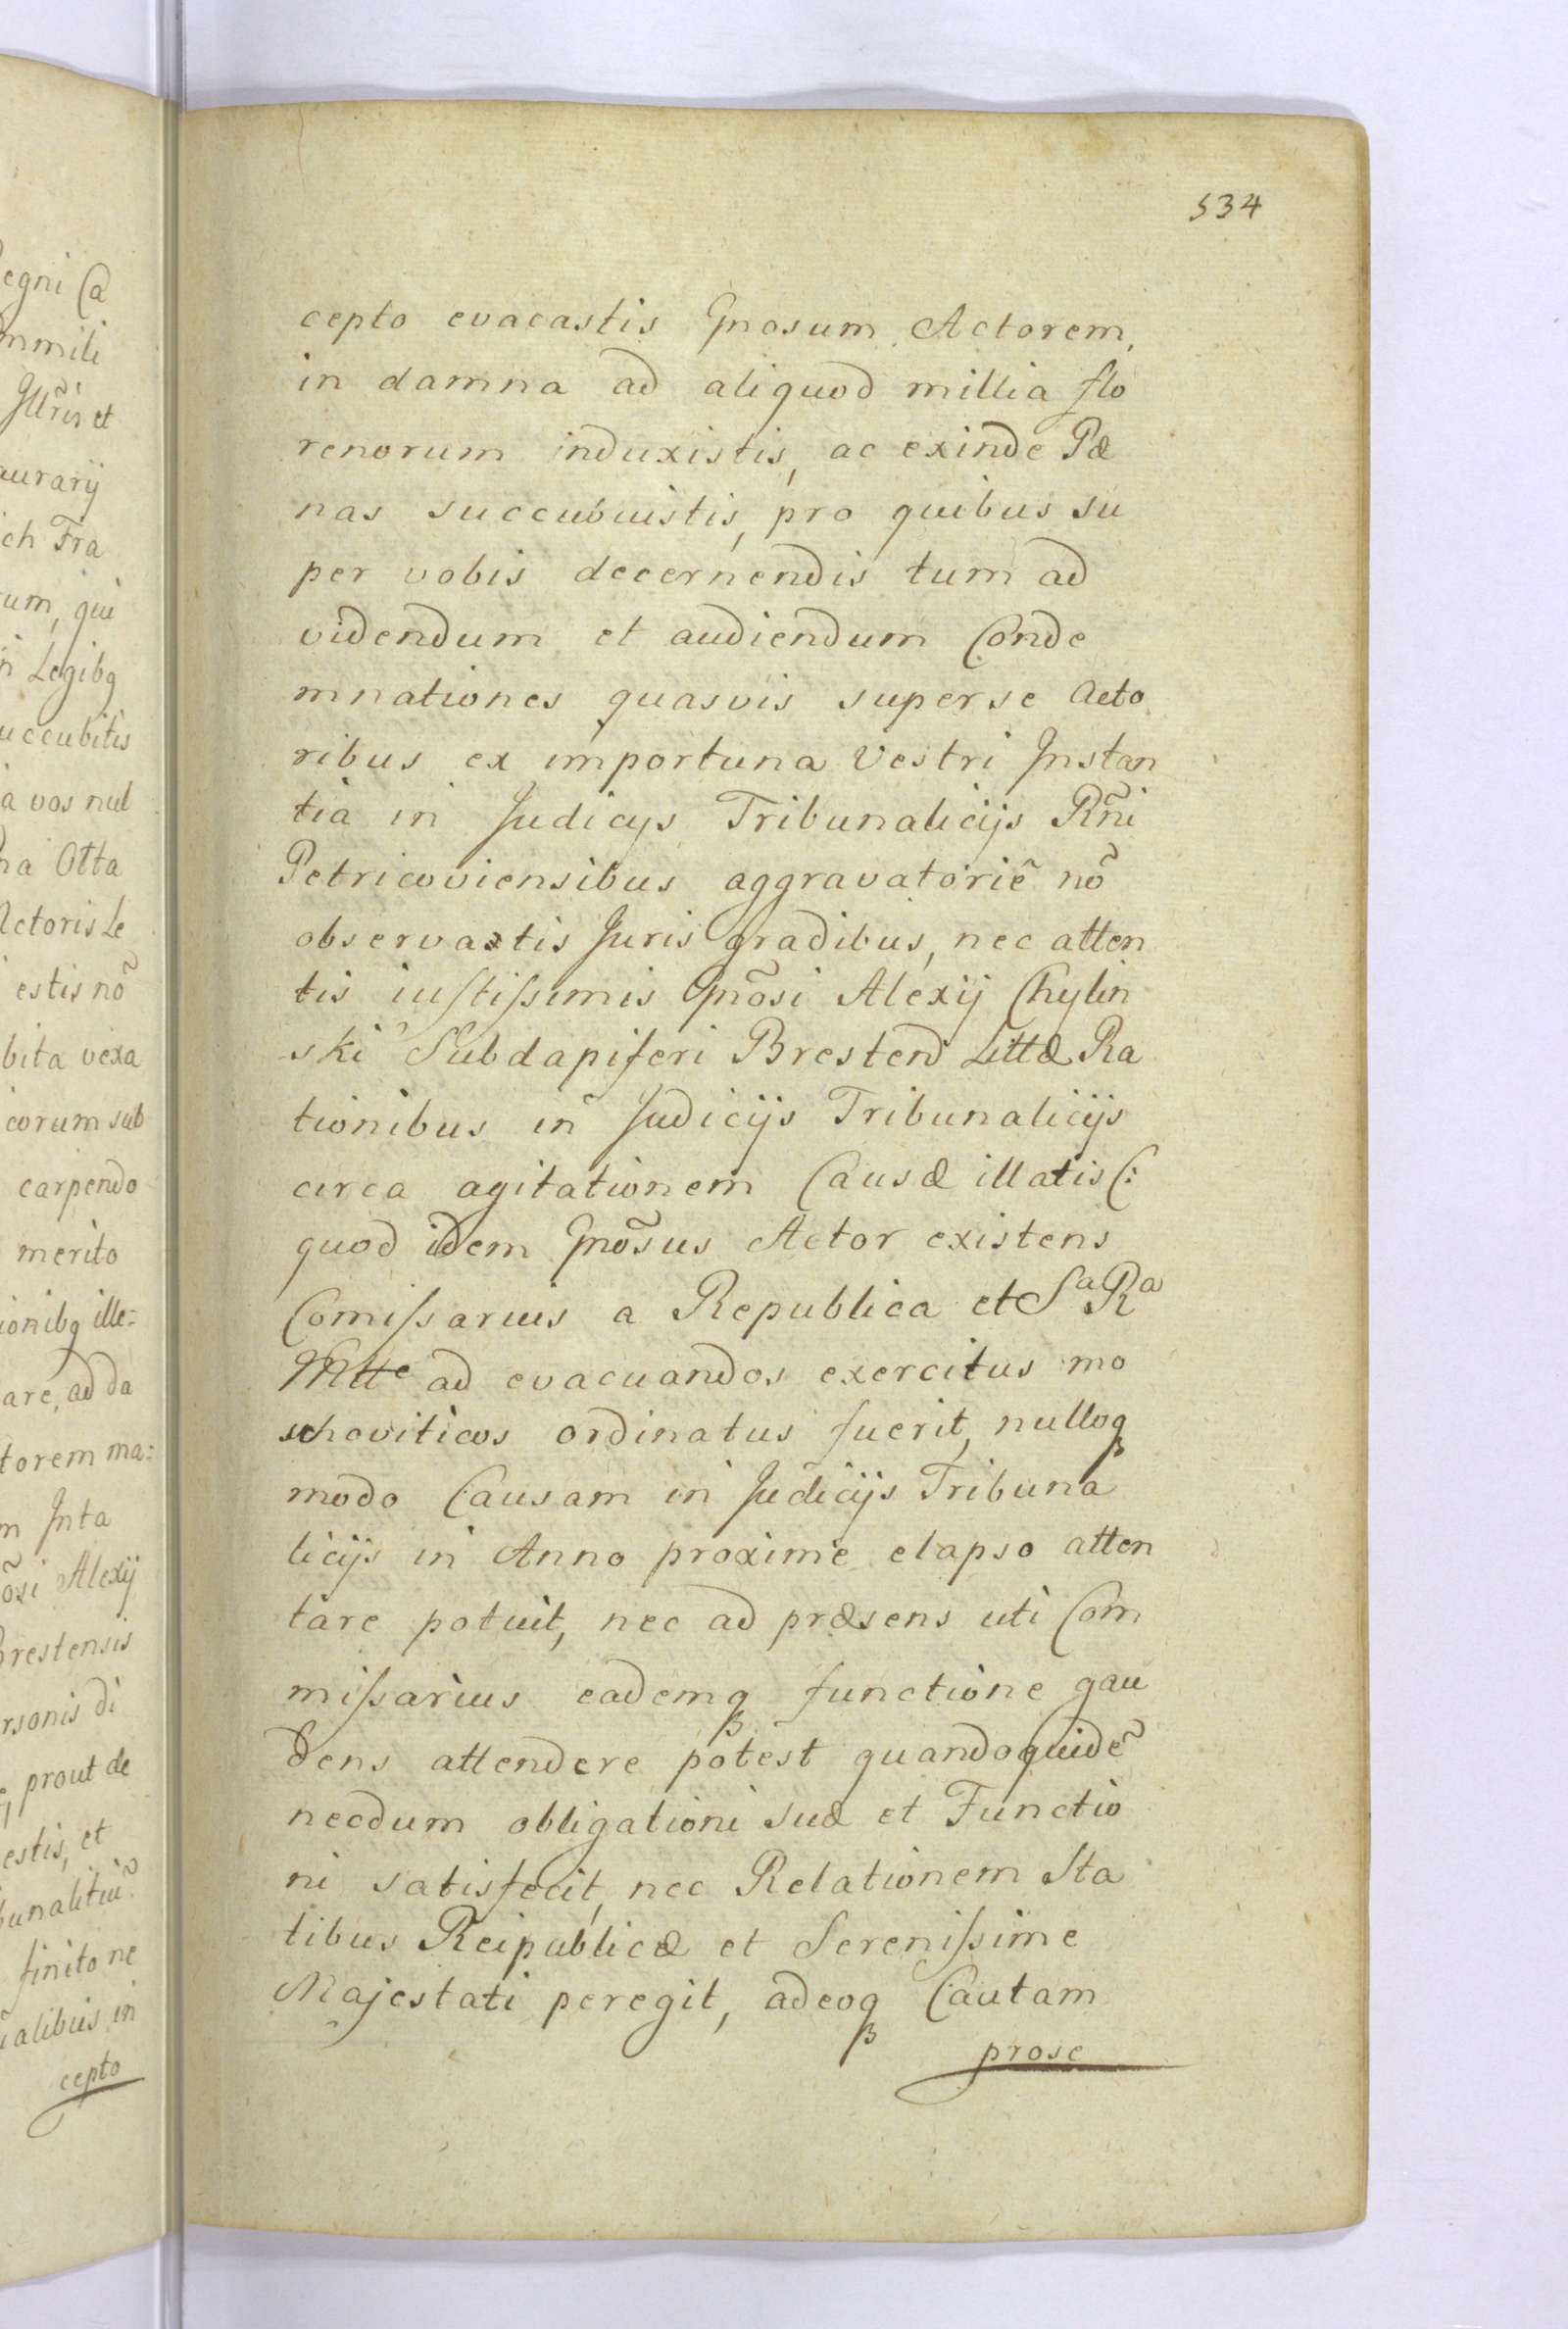 egni Ca
mmili
Jllr̃is et
aurarij
ich Fra
um, qui
n Legibq
uccubitis
a vos nul
na Otta
Actoris Le
estis nõ
bita vexa
icorum sub
carpendo
merito
ionibq ille=
are, ad da
torem ma=
m Jnta
õsi Alexij
Brestensis
rsonis di
e, prout de
estis, et
bunalitiũ
finito ne
ialibus in
cepto
534
cepto evacastis Gnosum Actorem,
in damna ad aliquod millia flo
renorum induxistis, ac exinde Pæ
nas succubuistis, pro quibus su
per vobis decernendis tum ad
videndum et audiendum Conde
mnationes quasvis super se Acto
ribus ex importuna Vestri Jnstan
tia in Judicijs Tribunalicijs Rñi
Petricoviensibus aggravatoriẽ nõ
observatis Juris gradibus, nec atten
tis iustissimis Gnõsi Alexij Chylin
ski Subdapiferi Bresten Littæ Ra
tionibus in Judicijs Tribunalicijs
circa agitationem Causæ illatis (:
quod idem Gnõsus Actor existens
Comissarius a Republica et Sa Ra
Mtte ad evacuandos exercitus mo
schoviticos ordinatus fuerit, nulloq
modo Causam in Judicijs Tribuna
licijs in Anno proxime elapso atten
tare potuit, nec ad præsens uti Com
missarius eademq functione gau
dens attendere potest quandoquidẽ
necdum obligationi suæ et Functio
ni satisfecit, nec Relationem Sta
tibus Reipublicæ et Serenissime
Majestati peregit, adeoq Cautam
prose